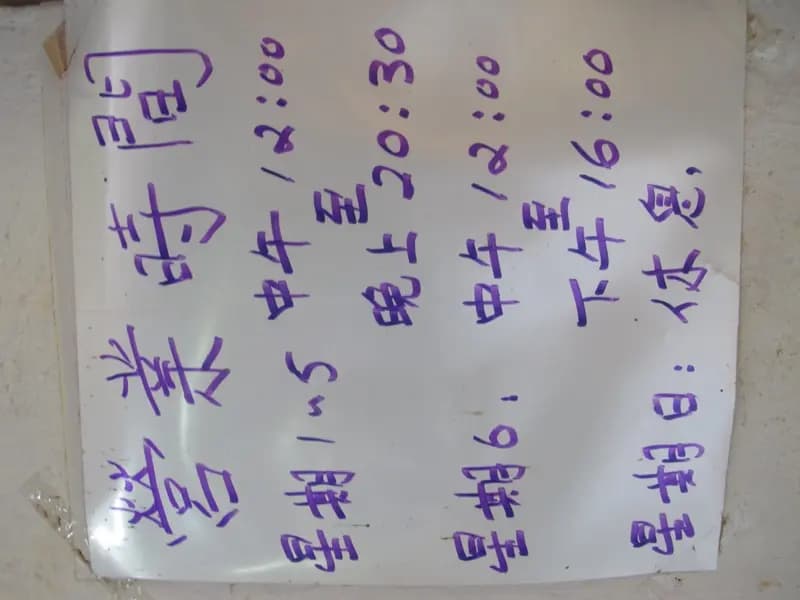 營業時間
星期1~5 中午12:00
至
晚上20:30
星期6: 中午12:00
至
下午16:00
星期日: 休息,